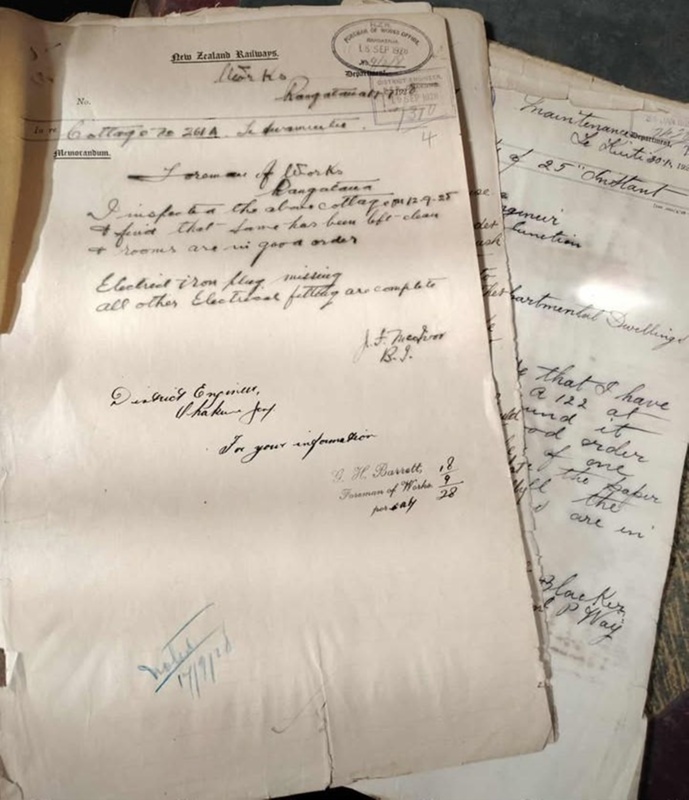 New Zealand Railways.
Works
Department
Rangataua
No.
In re Cottage No 261A. Taumarunui.
Memorandum.
Foreman of Works
Rangataua
I inspected the above cottage on 12-9-28
& find that same has been left clean
& rooms are in good order
Electric iron plug missing
all other Electrical fittings are complete
B.I.
District Engineer,
Ohakune Jct
For your information
G. H. Barrett, 18
Foreman of Works. 9
per 28
Noted
17/9/28
FOREMAN OF WORKS OFFICE
15 SEP 1928
DISTRICT ENGINEER
SEP 1928
4
Maintenance Department.
Te Kuiti
of 25th Instant
Engineer
Junction
Departmental Dwellings
that I have
A 122 at
found it
good order
of one
the paper
the
are in
Blacker
P Way